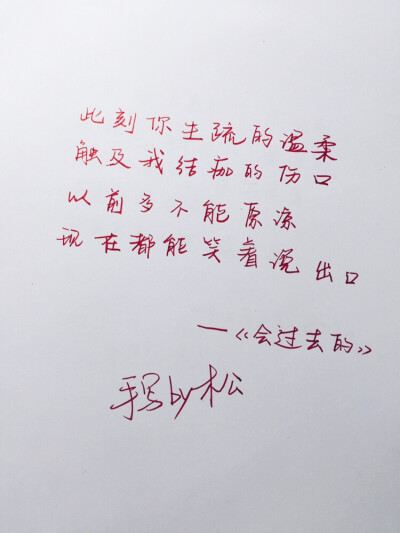 此刻你生疏的温柔
触及我结痂的伤口
以前多不能原凉
现在都能笑着说出口
—《会过去的》
手写by松